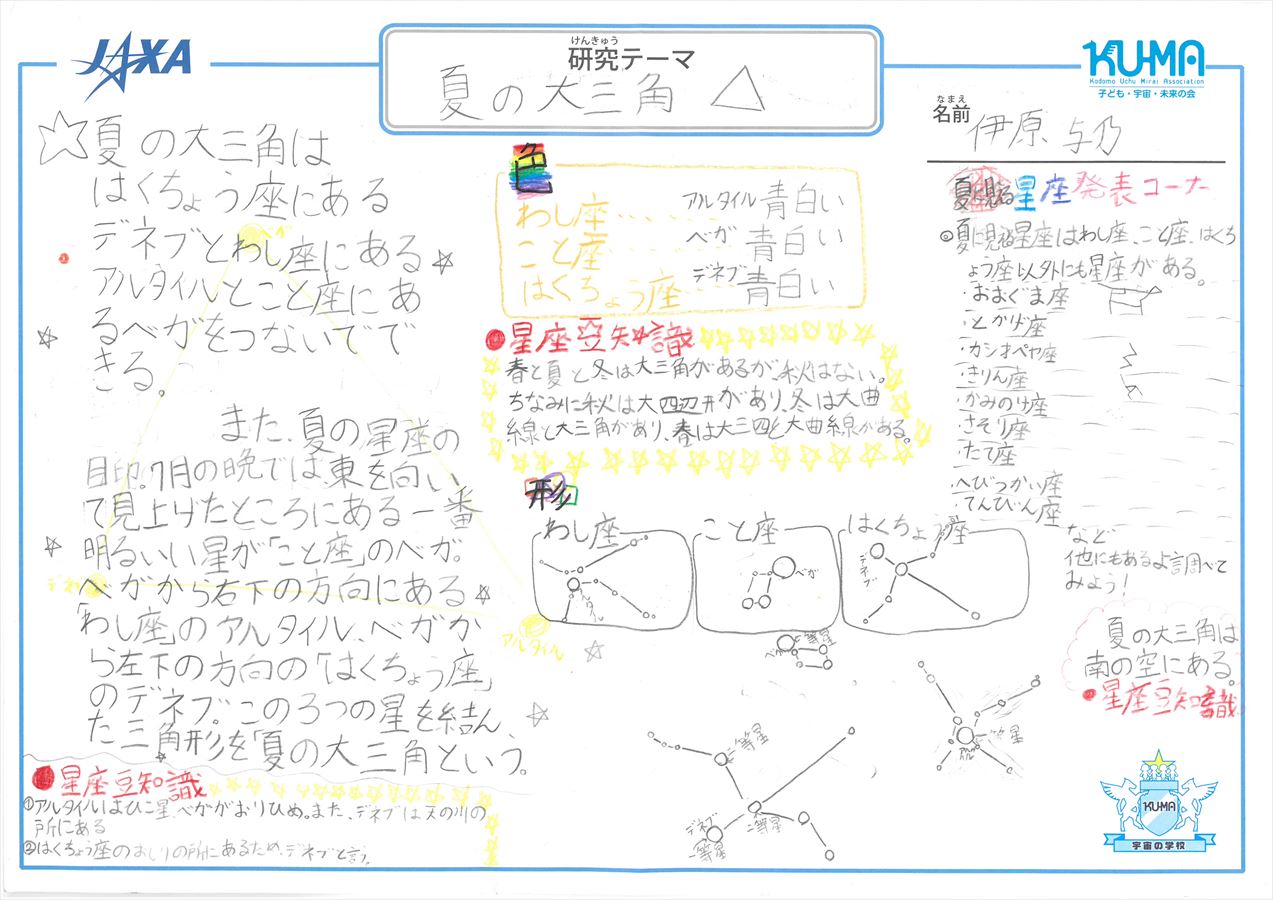 JAXA
けんきゅう
研究テーマ
夏の大三角
KU-MA
Kodomo Uchu Mirai Association
子ども・宇宙・未来の会
なまえ
名前
伊原 与乃
夏の大三角は
はくちょう座にある
デネブとわし座にある
アルタイルとこと座にあ
るベガをつないでで
きる。
また、夏の星座の
目印。7月の晩では、東を向い
て見上げたところにある一番
明るいい星が「こと座」のベガ。
ベガから右下の方向にある
「わし座」のアルタイル、ベガか
ら左下の方向の「はくちょう座」
のデネブ。この3つの星を結ん
た三角形を「夏の大三角という。
ベガ
デネブ
アルタイル
星座豆知識
①アルタイルはひこ星、ベガがおりひめ。また、デネブは天の川の
所にある
②はくちょう座のおしりの所にあるため、デネブと言う。
色
わし座……アルタイル 青白い
こと座……ベガ 青白い
はくちょう座…デネブ 青白い
星座豆知識
春と夏と冬は大三角があるが、秋はない。
ちなみに秋は大四辺形があり、冬は大曲
線と大三角があり、春は大三四と大曲線がある。
形
わし座
アルタイル
こと座
ベガ
はくちょう座
デネブ
ベガ 一等星
二等星
二等星
デネブ
一等星
アルタイル
一等星
夏に見る星座発表コーナー
◎夏に見る星座はわし座、こと座、はくち
ょう座以外にも星座がある。
・おおぐま座
・とかげ座
・カシオペヤ座
・きりん座
・かみのけ座
・さそり座
・たて座
・へびつかい座
・てんびん座
など
他にもあるよ調べて
みよう!
夏の大三角は
南の空にある。
星座豆知識
KU-MA
宇宙の学校